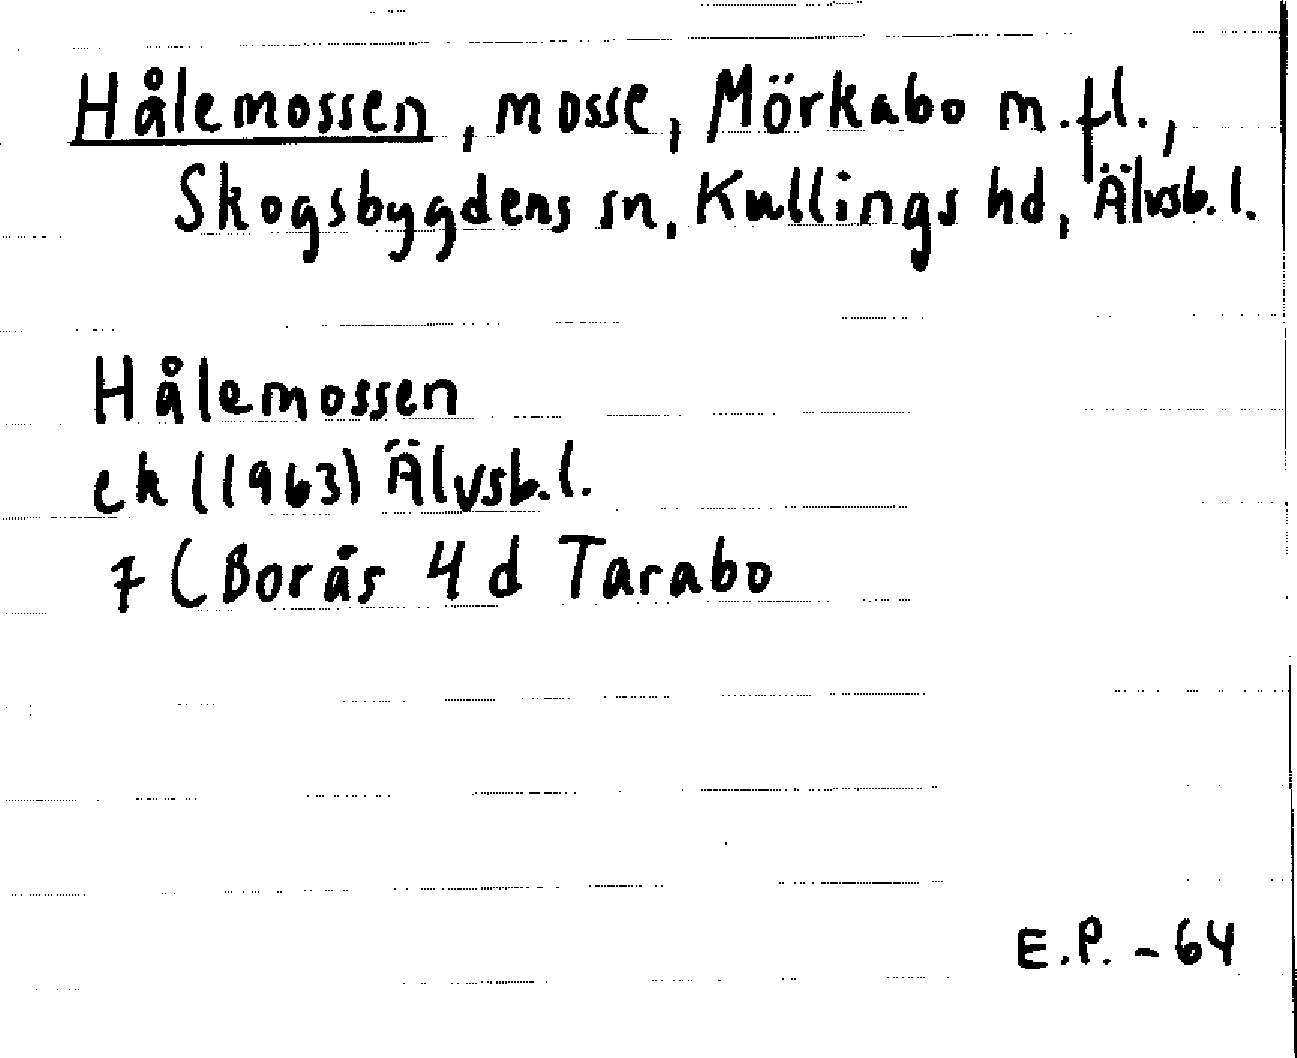 Hålemossen, mosse, Mörkabo m.fl.,
Skogsbygdens sn, Kullings hd, Älvsb.l.
Hålemossen
ek (1963) Älvsb.l.
7 (Borås 4 d Tarabo
E.P. - 64